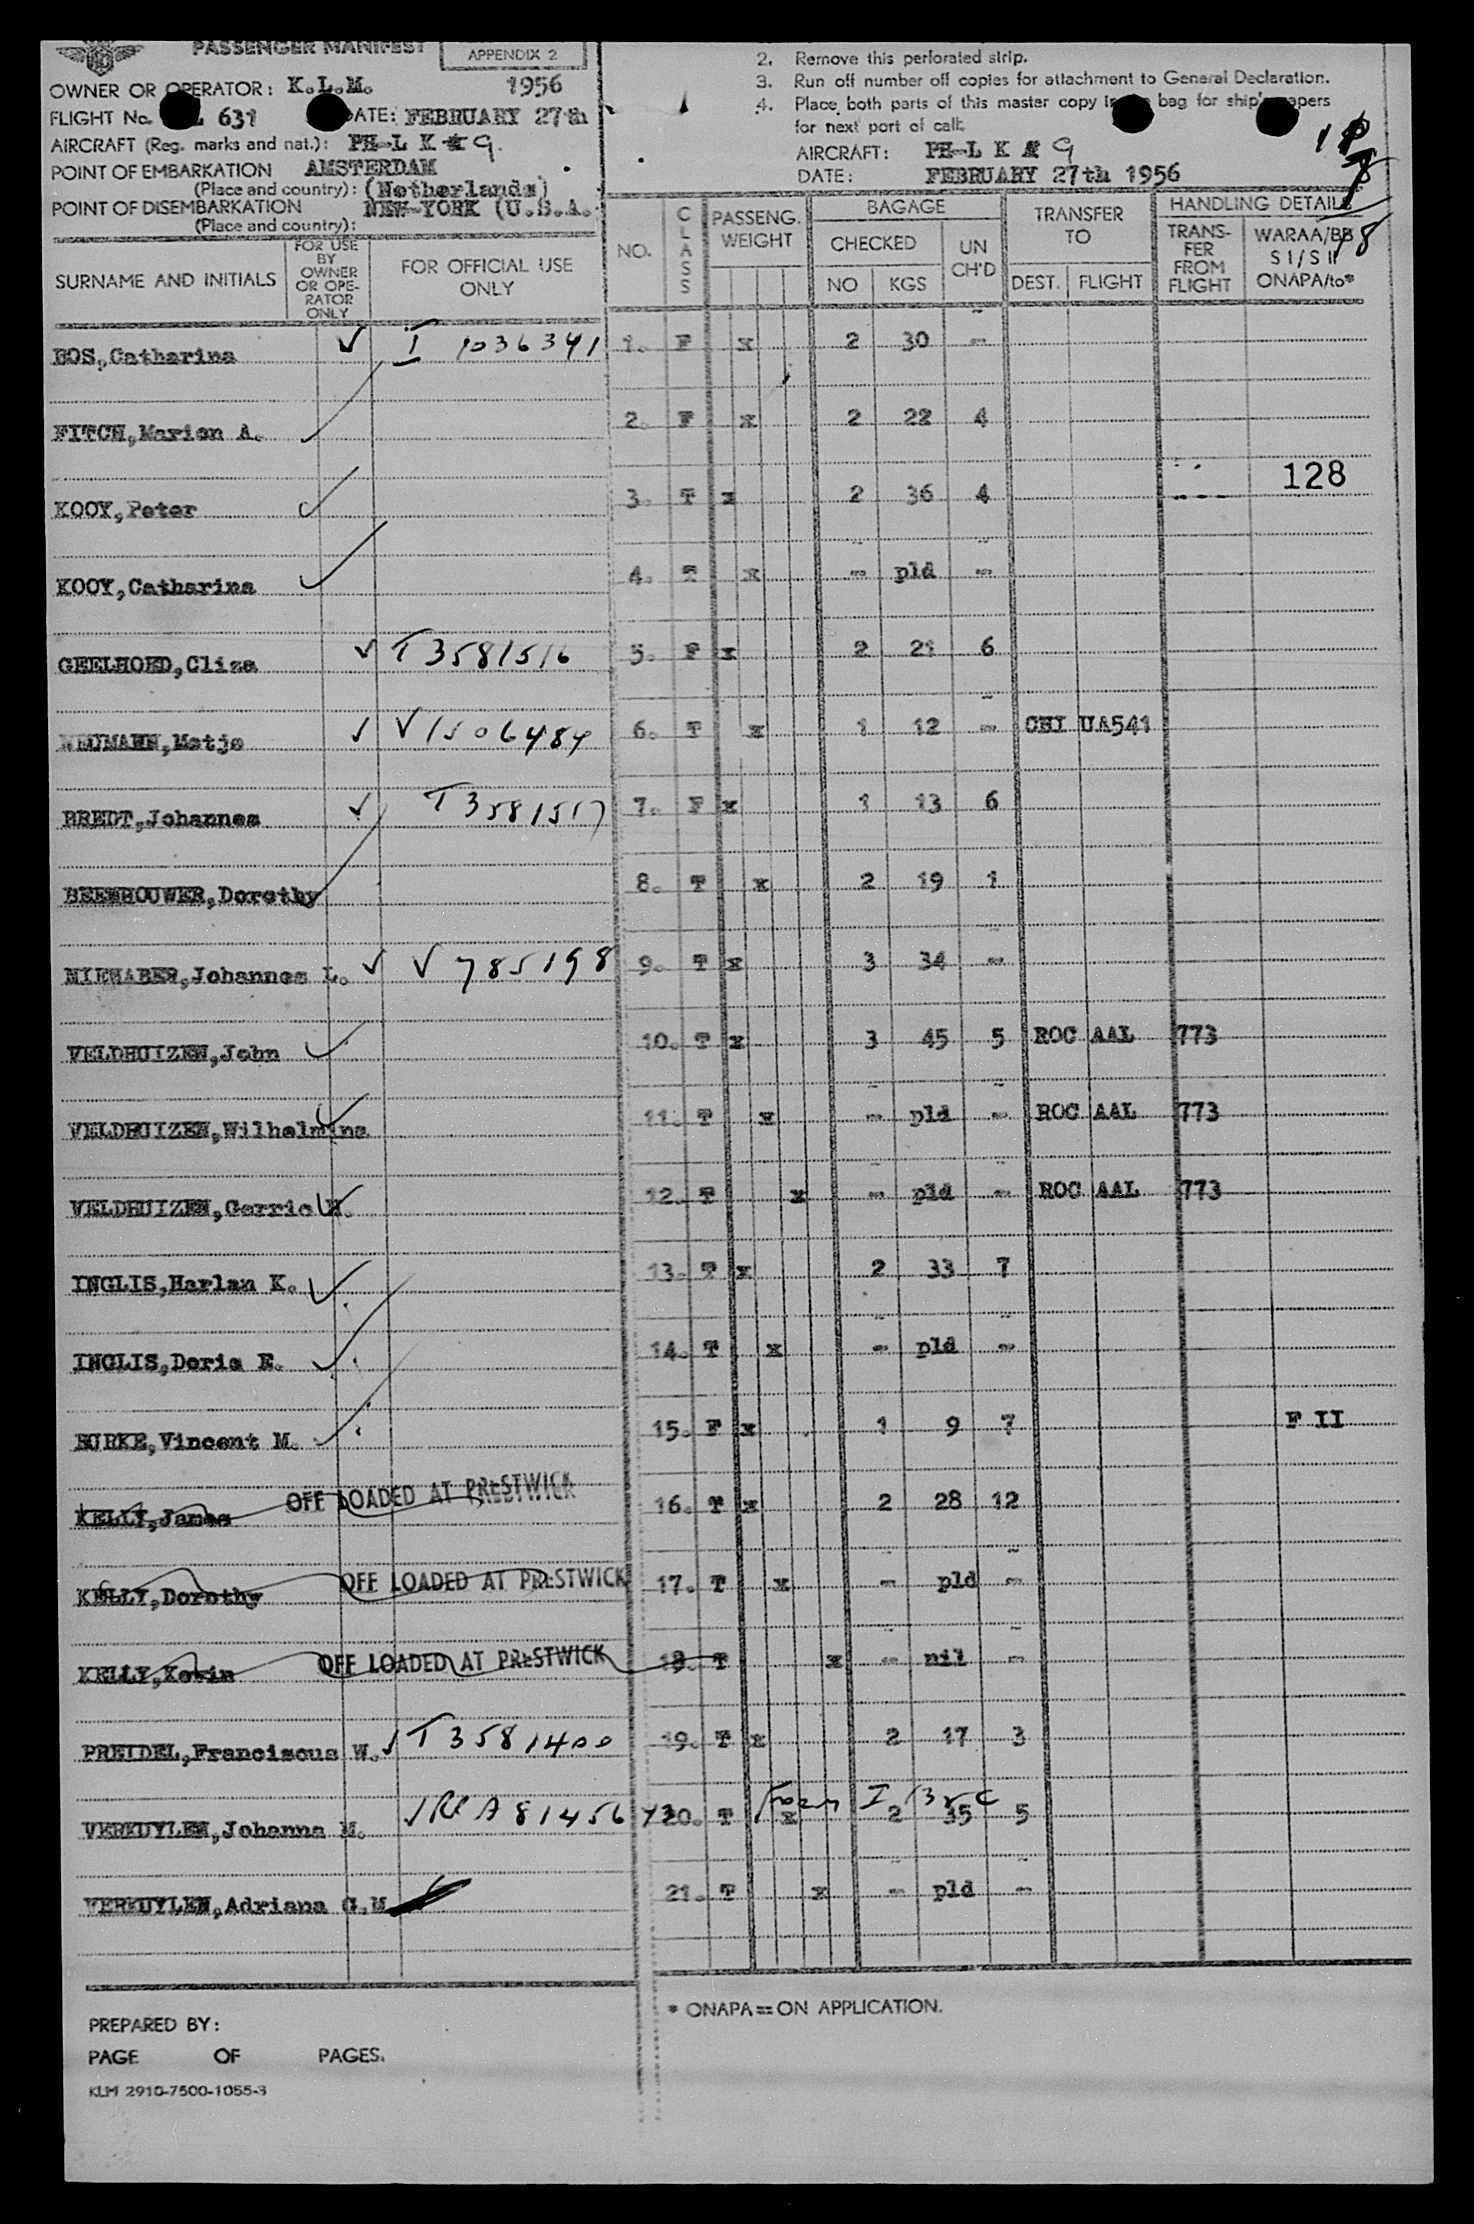 PASSENGER MANIFEST
APPENDIX 2
OWNER OR OPERATOR: K.L.M. 1956
FLIGHT No. L 631 DATE: FEBRUARY 27th
AIRCRAFT (Reg. marks and nat.): PH-L K G.
POINT OF EMBARKATION AMSTERDAM
(Place and country): (Netherlands)
POINT OF DISEMBARKATION NEW-YORK (U.S.A.
(Place and country):
2. Remove this perforated strip.
3. Run off number off copies for attachment to General Declaration.
4. Place both parts of this master copy in bag for ship's papers
for next port of call:
AIRCRAFT: PH-L K G
DATE: FEBRUARY 27th 1956
18
SURNAME AND INITIALS FOR USE BY OWNER OR OPE- RATOR ONLY FOR OFFICIAL USE ONLY NO. CLASS PASSENG. WEIGHT BAGAGE CHECKED NO KGS UN CH'D TRANSFER TO DEST. FLIGHT HANDLING DETAILS TRANS- FER FROM FLIGHT WARAA/BB S I/S II ONAPA/to*
BOS, Catharina ✓ I 1036341 1. F x 2 30 -
FITCH, Marion A. ✓ 2. F x 2 22 4
128
KOOY, Peter ✓ 3. T x 2 36 4
KOOY, Catharina ✓ 4. T x - pld -
GEELHOED, Cliza ✓ T 3581516 5. F x 2 21 6
NEUMANN, Metje ✓ V 1506484 6. T x 1 12 - CHI UA541
BREDT, Johannes ✓ T 3581517 7. F x 1 13 6
BEEUWHOUWER, Dorothy ✓ 8. T x 2 19 1
NIEHABER, Johannes L. ✓ V 785198 9. T x 3 34 -
VELDHUIZEN, John ✓ 10. T x 3 45 5 ROC AAL 773
VELDHUIZEN, Wilhelmina ✓ 11. T x - pld - ROC AAL 773
VELDHUIZEN, Gerrie H. ✓ 12. T x - pld - ROC AAL 773
INGLIS, Harlan K. ✓ 13. T x 2 33 7
INGLIS, Doris E. ✓ 14. T x - pld -
BURKE, Vincent M. ✓ 15. F x 1 9 7 F II
KELLY, James OFF LOADED AT PRESTWICK 16. T x 2 28 12
KELLY, Dorothy OFF LOADED AT PRESTWICK 17. T x - pld -
KELLY, Kevin OFF LOADED AT PRESTWICK 18. T x - nil -
PREIDEL, Franciscus W. ✓ T 3581400 19. T x 2 17 3
VERKUYLEN, Johanna M. ✓ 20. T x 2 35 5
VERKUYLEN, Adriana G.M. 21. T x - pld -
PREPARED BY:
PAGE OF PAGES.
KLM 2910-7500-1055-3
* ONAPA=ON APPLICATION.